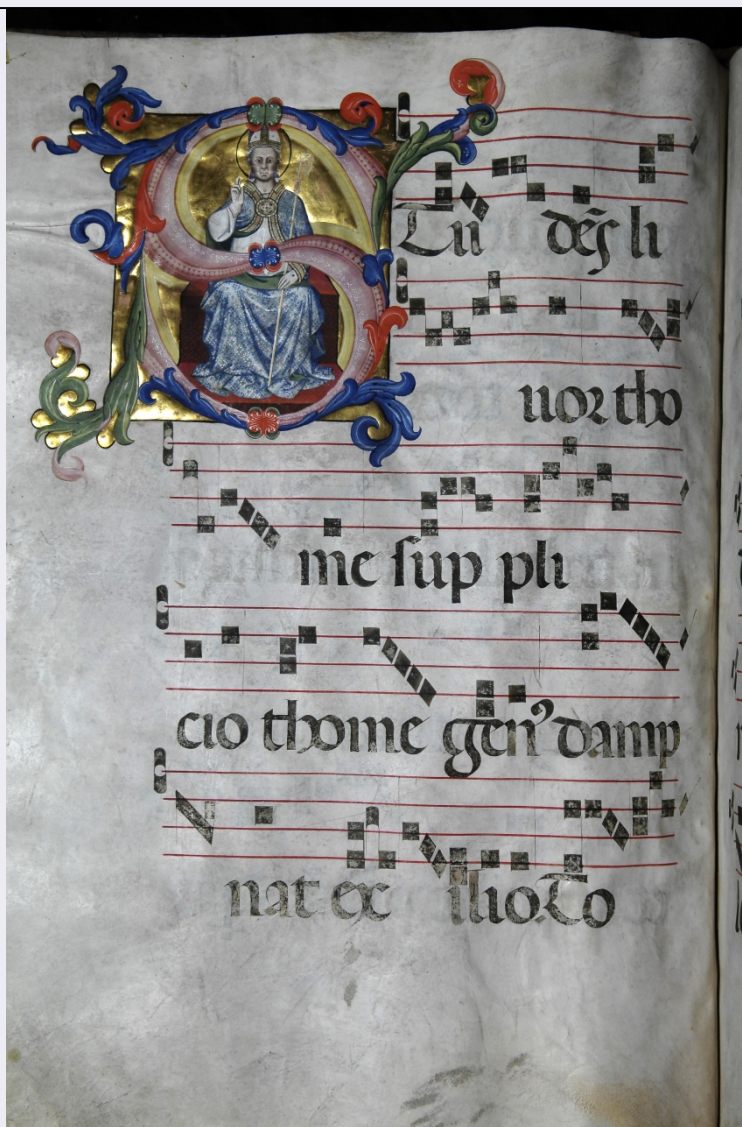 STu dẽs li
uor tho
me sup pli
cio thome genꝰ damp
nat ex ilio. To